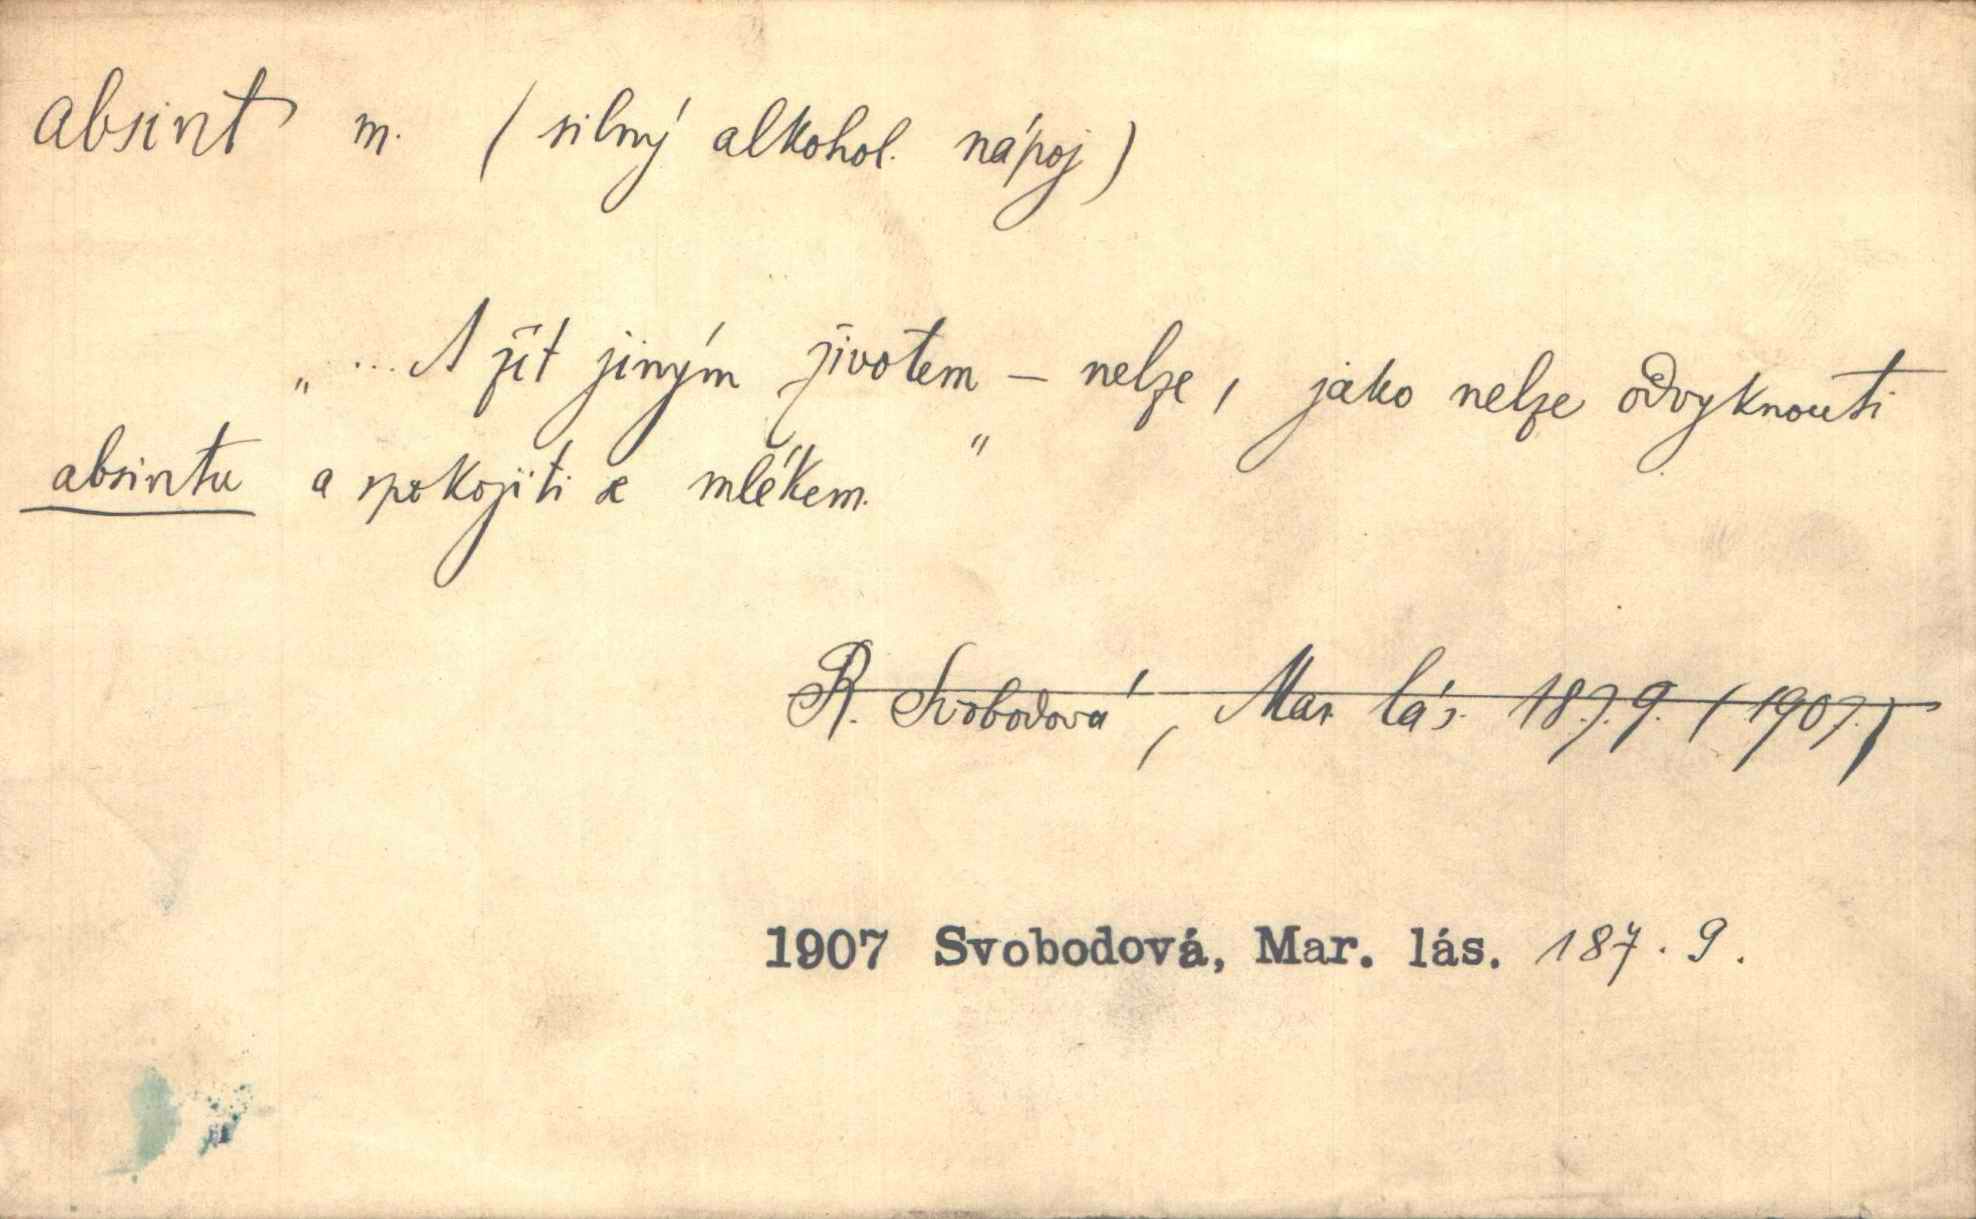 absint m. (silný alkohol. nápoj)
„ ... A žít jiným životem – nelze, jako nelze odvyknouti
absintu a spokojiti se mlékem."
R. Svobodová, Mar. lás. 187.9. (1907.)
1907 Svobodová, Mar. lás. 187.9.